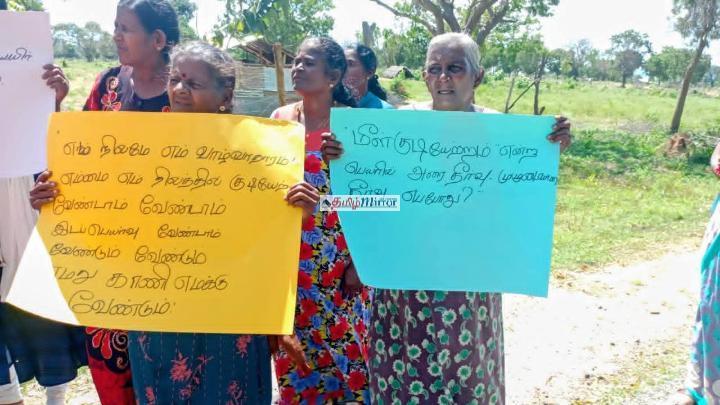 எம் நிலமே எம் வாழ்வாதாரம்
எம்மை எம் நிலத்தில் குடியேற
வேண்டாம் வேண்டாம்
இடப்பெயர்வு வேண்டாம்
வேண்டும் வேண்டும்
எமது காணி எமக்கு
வேண்டும்.
"மீள்குடியேற்றம்" என்ற
பெயரில் அரை தீர்வு முழுமையான
தீர்வு எப்போது?"
தமிழ்mirror